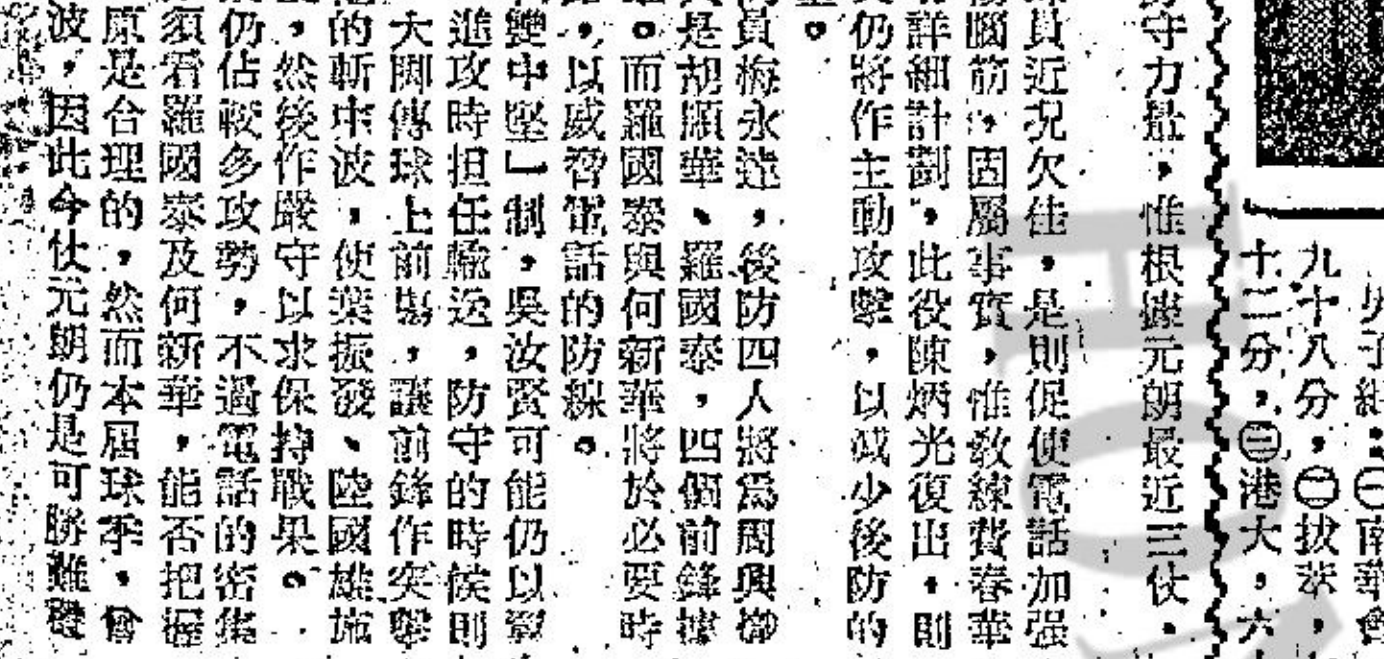 九十八分，㊁拔萃，
十二分，㊂港大，六
守力量，惟根據元朗最近三仗，
員近況欠佳，是則促使電話加强
腦筋，固屬事實，惟教練費春華
詳細計劃，此役陳炳光復出，則
仍將作主動攻擊，以减少後防的
。
員梅永達，後防四人將為周興
是胡順華、羅國泰，四個前鋒據
。而羅國泰與何新華將於必要時
，以威脅電話的防線。
變中堅」制，吳汝賢可能仍以
進攻時担任輸送，防守的時候則
大脚傳球上前場，讓前鋒作突擊
的斬中波，使葉振發、陸國雄施
，然後作嚴守以求保持戰果。
仍佔較多攻勢，不過電話的密集
須看羅國泰及何新華，能否把握
原是合理的，然而本屆球季，會
波，因此今仗元朗仍是可勝難